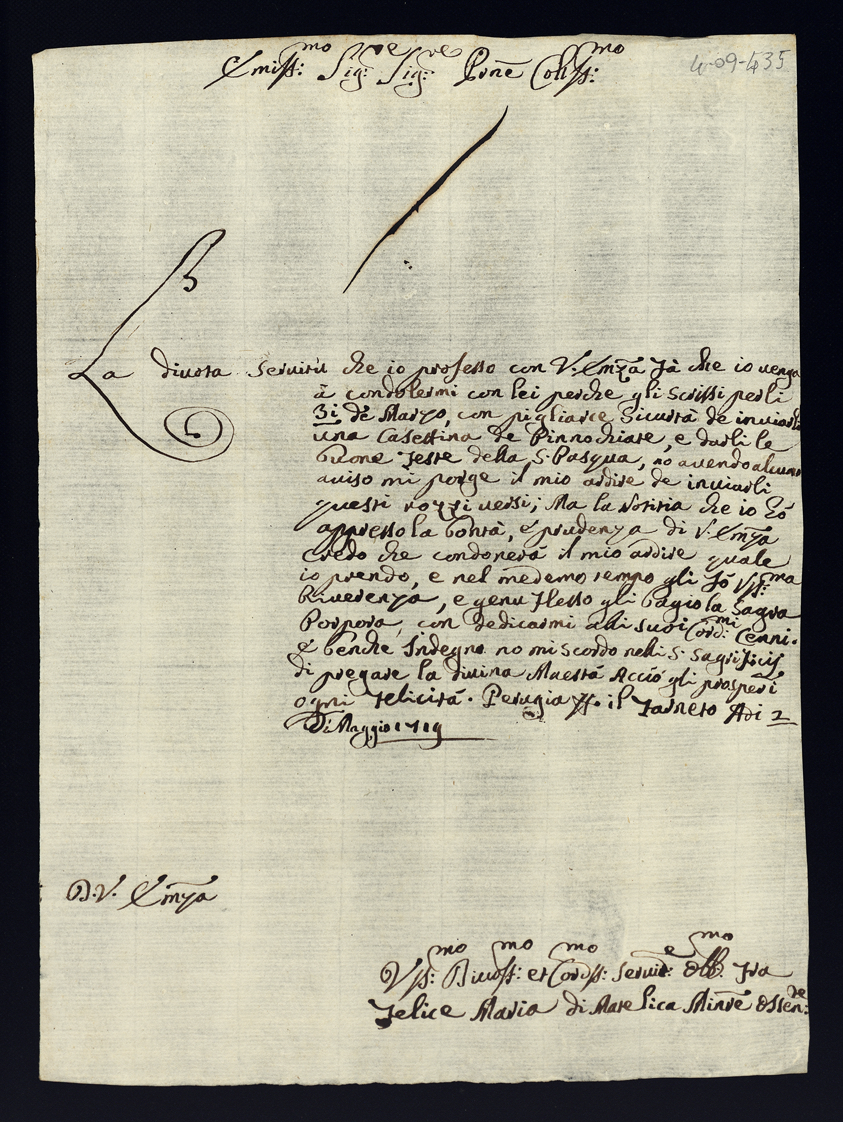 Emiss:mo Sig:re Sig:re Pr͞one Col͞iss:mo
4-09-435
La divota Servitù che io professo con V. Em͞za fà che io venga
à condolermi con lei perche gli scrissi per li
3i de Marzo, con pigliarce Sicurtà de inviarli
una Casettina de Pinnochiate, e darli le
buone feste della S. Pasqua, no avendo alcuno
aviso mi porge il mio ardire de inviarli
questi rozzi versi; Ma la Notitia che io hò
appresso la bontà, e prudenza di V. Em͞za
Credo che condonerà il mio ardire quale
io prendo, e nel medemo tempo gli fò Vss:ma
Riverenza, e genu flesso gli bagio la Sagra
Porpora, con dedicarmi alli suoi Cord:mi Cenni.
E benche Indegno no mi scordo nelli S. Sagrificij
di pregare la divina Maestà Acciò gli prosperi
ogni felicità. Perugia il Farneto Adi 2
Di Maggio 1719
D. V. Em͞za
Vss:mo Divoss:mo et Cordss:mo Servit:e Obb:mo Fra
Felice Maria di Matelica Min͞re Osserv:te